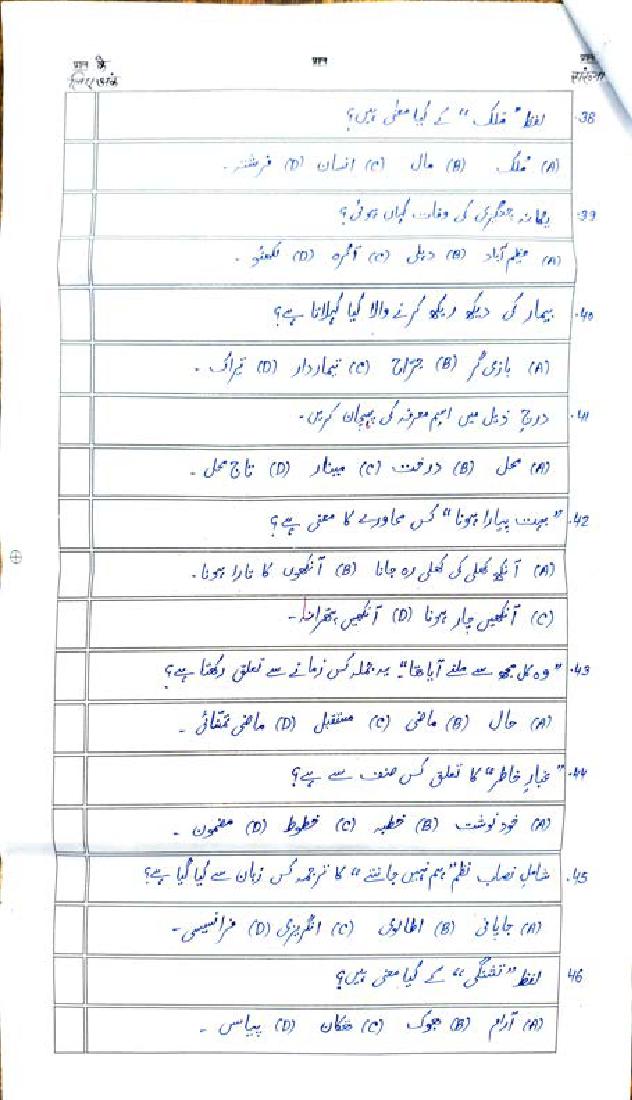 प्रश्न कि
प्रश्न
प्रश्न
38. لفظ "ملک" کے کیا معنی ہیں؟
(A) مُلک (B) مال (C) انسان (D) فرشتہ۔
39. یگانہ چنگیزی کی وفات کہاں ہوئی؟
(A) عظیم آباد (B) دہلی (C) آگرہ (D) لکھنؤ۔
40. بیمار کی دیکھ ریکھ کرنے والا کیا کہلاتا ہے؟
(A) بازی گر (B) جرّاح (C) تیماردار (D) تیراک۔
41. درج ذیل میں اسم معرفہ کی پہچان کریں۔
(A) محل (B) درخت (C) مینار (D) تاج محل۔
42. "بہت پیارا ہونا" کس محاورے کا معنی ہے؟
(A) آنکھ کھلی کی کھلی رہ جانا (B) آنکھوں کا تارا ہونا۔
(C) آنکھیں چار ہونا (D) آنکھیں پتھرانا۔
43. "وہ کل مجھ سے ملنے آیا تھا"۔ یہ جملہ کس زمانے سے تعلق رکھتا ہے؟
(A) حال (B) ماضی (C) مستقبل (D) ماضی تمنّائی۔
44. "غبارِ خاطر" کا تعلق کس صنف سے ہے؟
(A) خودنوشت (B) خطبہ (C) خطوط (D) مضمون۔
45. شاملِ نصاب نظم "ہم نہیں جانتے" کا ترجمہ کس زبان سے کیا گیا ہے؟
(A) جاپانی (B) اطالوی (C) انگریزی (D) فرانسیسی۔
46 لفظ "تشنگی" کے کیا معنی ہیں؟
(A) آرام (B) بھوک (C) تھکان (D) پیاس۔